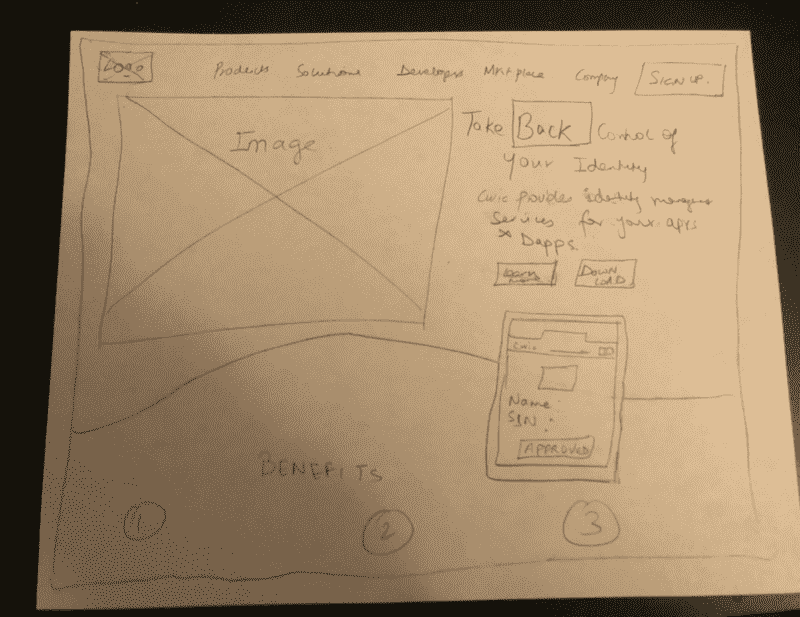 Logo Products Solutions Developers Mktplace Company SIGN UP.
Image
Take Back Control of
your Identity
Civic provides identity
services for your apps
Dapps.
Learn more
DOWN LOAD
Civic
Name
SIN :
APPROVED
BENEFITS
1 2 3